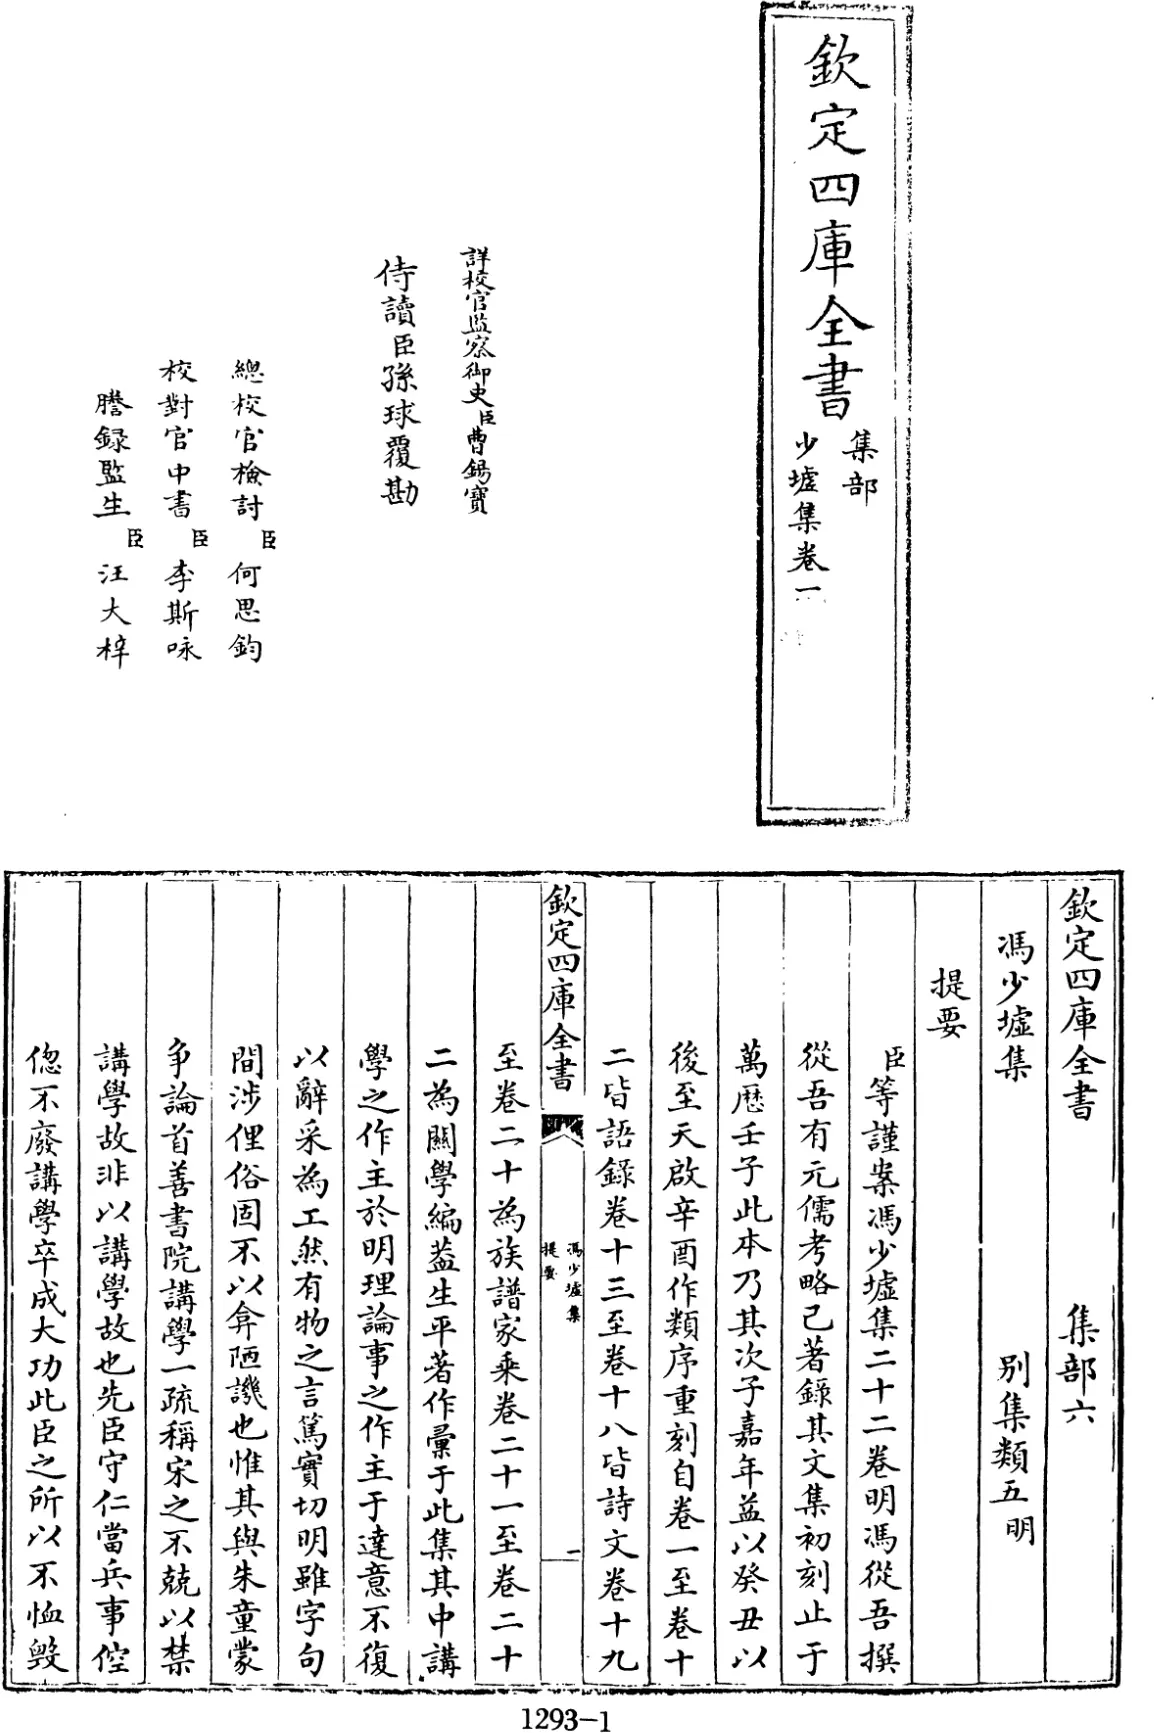 欽定四庫全書
集部
少墟集卷一
詳校官監察御史臣曹錫寶
侍讀臣孫球覆勘
總校官檢討臣何思鈞
校對官中書臣李斯咏
謄錄監生臣汪大梓
欽定四庫全書 集部六
馮少墟集 别集類五明
提要
臣等謹案馮少墟集二十二卷明馮從吾撰
從吾有元儒考略已著錄其文集初刻止于
萬歷壬子此本乃其次子嘉年益以癸丑以
後至天啟辛酉作類序重刻自卷一至卷十
二皆語錄卷十三至卷十八皆詩文卷十九
欽定四庫全書
馮少墟集
提要
一
至卷二十為族譜家乘卷二十一至卷二十
二為關學編葢生平著作彙于此集其中講
學之作主於明理論事之作主于達意不復
以辭采為工然有物之言篤實切明雖字句
間涉俚俗固不以弇陋譏也惟其與朱童蒙
争論首善書院講學一疏稱宋之不兢以禁
講學故非以講學故也先臣守仁當兵事倥
偬不廢講學卒成大功此臣之所以不恤毁
1293-1